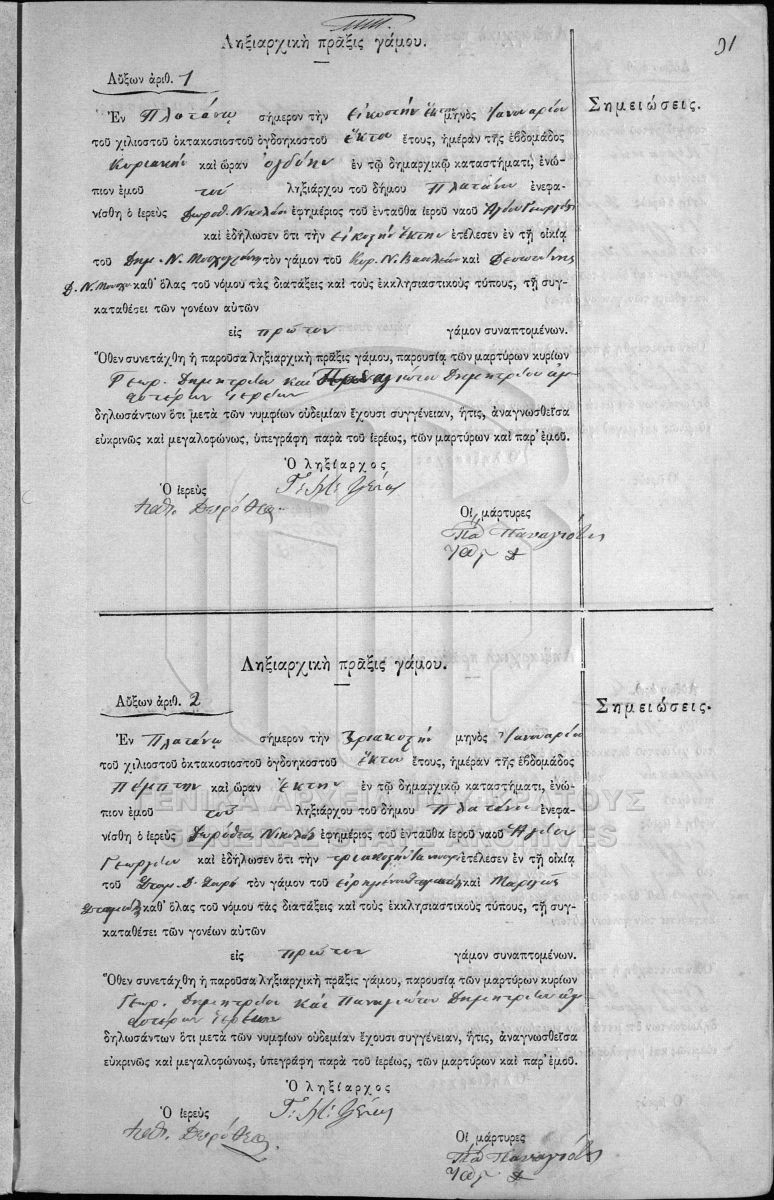 91
Ληξιαρχικὴ πρᾶξις γάμου.
Αὔξων ἀριθ. 1
Σημειώσεις.
Ἐν Πλατάνῳ σήμερον τὴν εἰκοστὴν ἕκτην μηνὸς Ἰανουαρίου
τοῦ χιλιοστοῦ ὀκτακοσιοστοῦ ὀγδοηκοστοῦ ἕκτου ἔτους, ἡμέραν τῆς ἑβδομάδος
Κυριακὴν καὶ ὥραν ὀγδόην ἐν τῷ δημαρχικῷ καταστήματι, ἐνώ-
πιον ἐμοῦ τοῦ ληξιάρχου τοῦ δήμου Πλατάνου ἐνεφα-
νίσθη ὁ ἱερεὺς Δωροθ. Νικολάου ἐφημέριος τοῦ ἐνταῦθα ἱεροῦ ναοῦ Ἁγίου Γεωργίου
καὶ ἐδήλωσεν ὅτι τὴν εἰκοστὴν ἕκτην ἐτέλεσεν ἐν τῇ οἰκίᾳ
τοῦ Δημ. Ν. τὸν γάμον τοῦ Ν. καὶ Δεσποίνης
Δ. Ν. καθ' ὅλας τοῦ νόμου τὰς διατάξεις καὶ τοὺς ἐκκλησιαστικοὺς τύπους, τῇ συγ-
καταθέσει τῶν γονέων αὐτῶν
εἰς πρῶτον γάμον συναπτομένων.
Ὅθεν συνετάχθη ἡ παροῦσα ληξιαρχικὴ πρᾶξις γάμου, παρουσίᾳ τῶν μαρτύρων κυρίων
Γεωρ. Δημητρίου καὶ Δημητρίου ἀμ-
φοτέρων ἱερέων
δηλωσάντων ὅτι μετὰ τῶν νυμφίων οὐδεμίαν ἔχουσι συγγένειαν, ἥτις, ἀναγνωσθεῖσα
εὐκρινῶς καὶ μεγαλοφώνως, ὑπεγράφη παρὰ τοῦ ἱερέως, τῶν μαρτύρων καὶ παρ' ἐμοῦ.
Ὁ ληξίαρχος
Ὁ ἱερεὺς
Οἱ μάρτυρες
Ληξιαρχικὴ πρᾶξις γάμου.
Αὔξων ἀριθ. 2
Σημειώσεις.
Ἐν Πλατάνῳ σήμερον τὴν τριακοστὴν μηνὸς Ἰανουαρίου
τοῦ χιλιοστοῦ ὀκτακοσιοστοῦ ὀγδοηκοστοῦ ἕκτου ἔτους, ἡμέραν τῆς ἑβδομάδος
Πέμπτην καὶ ὥραν ἕκτην ἐν τῷ δημαρχικῷ καταστήματι, ἐνώ-
πιον ἐμοῦ τοῦ ληξιάρχου τοῦ δήμου Πλατάνου ἐνεφα-
νίσθη ὁ ἱερεὺς Δωρόθεος Νικολάου ἐφημέριος τοῦ ἐνταῦθα ἱεροῦ ναοῦ Ἁγίου
Γεωργίου καὶ ἐδήλωσεν ὅτι τὴν τριακοστὴν ἐτέλεσεν ἐν τῇ οἰκίᾳ
τοῦ Δ. τὸν γάμον τοῦ καὶ
καθ' ὅλας τοῦ νόμου τὰς διατάξεις καὶ τοὺς ἐκκλησιαστικοὺς τύπους, τῇ συγ-
καταθέσει τῶν γονέων αὐτῶν
εἰς πρῶτον γάμον συναπτομένων.
Ὅθεν συνετάχθη ἡ παροῦσα ληξιαρχικὴ πρᾶξις γάμου, παρουσίᾳ τῶν μαρτύρων κυρίων
Γεωρ. Δημητρίου καὶ Παναγιώτου Δημητρίου ἀμ-
φοτέρων ἱερέων
δηλωσάντων ὅτι μετὰ τῶν νυμφίων οὐδεμίαν ἔχουσι συγγένειαν, ἥτις, ἀναγνωσθεῖσα
εὐκρινῶς καὶ μεγαλοφώνως, ὑπεγράφη παρὰ τοῦ ἱερέως, τῶν μαρτύρων καὶ παρ' ἐμοῦ.
Ὁ ληξίαρχος
Ὁ ἱερεὺς
Οἱ μάρτυρες